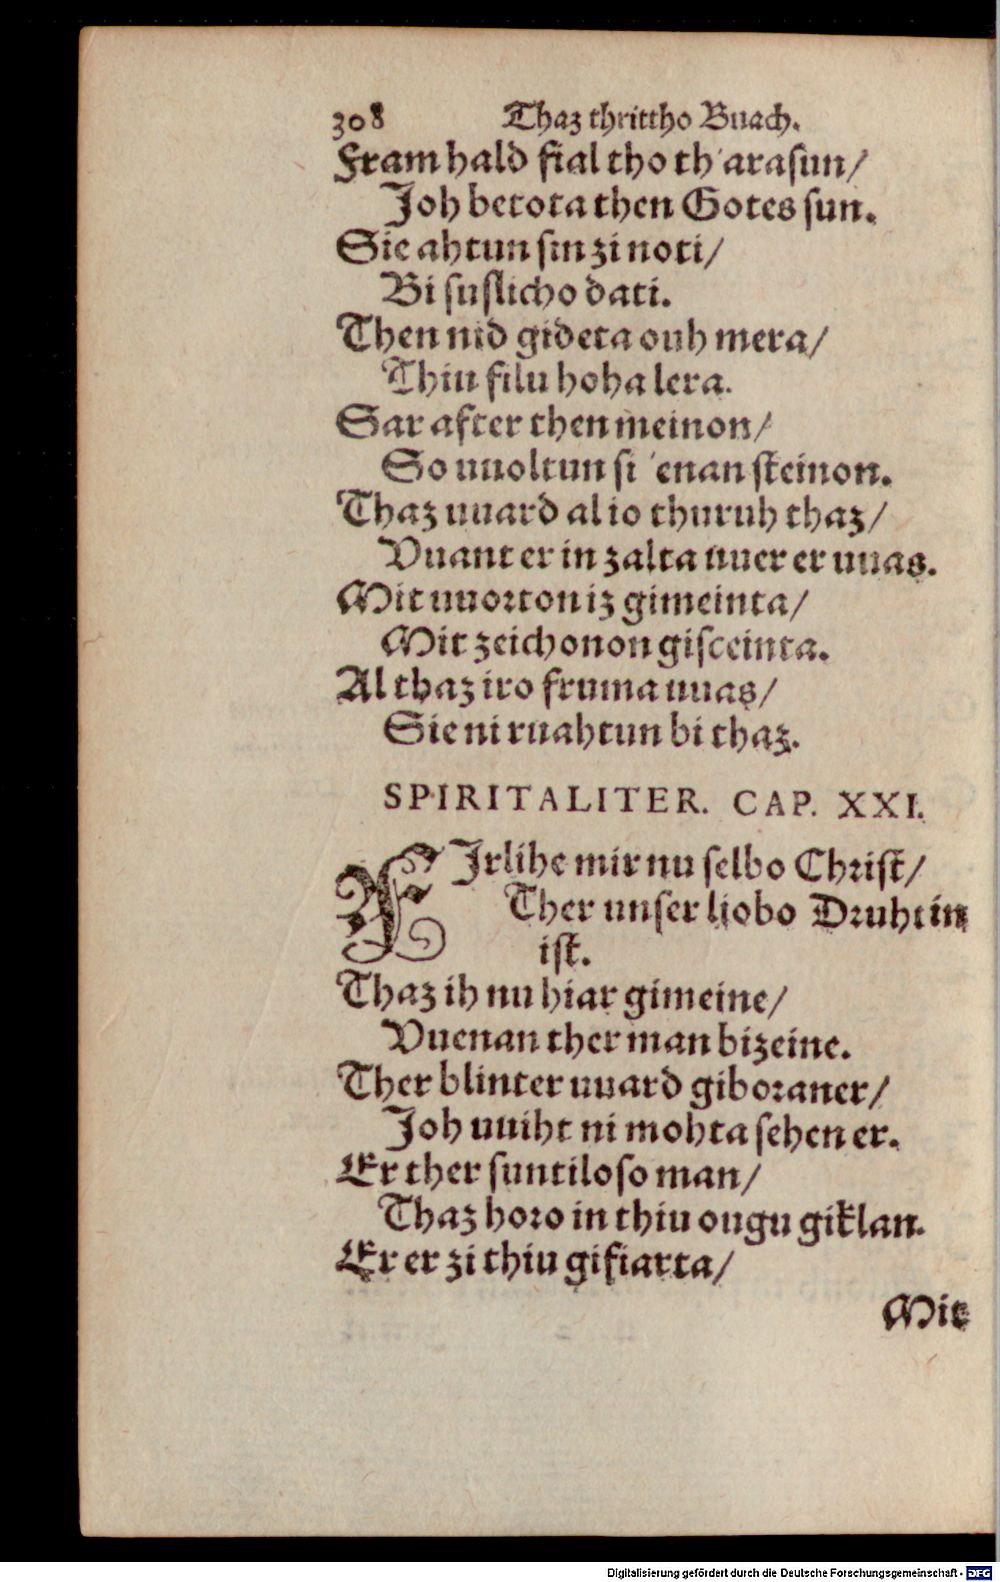 308 Thaz thrittho Buach.
Fram hald fial tho th'arasun/
Joh betota then Gotes sun.
Sie ahtun sin zi noti/
Bi suslicho dati.
Then nid gideta ouh mera/
Thiu filu hoha lera.
Sar after then meinon/
So uuoltun si 'enan steinon.
Thaz uuard al io thuruh thaz/
Vuant er in zalta uuer er uuas.
Mit uuorton iz gimeinta/
Mit zeichonon gisceinta.
Al thaz iro fruma uuas/
Sie ni ruahtun bi thaz.
SPIRITALITER. CAP. XXI.
FIrlihe mir nu selbo Christ/
Ther unser liobo Druhtin
ist.
Thaz ih nu hiar gimeine/
Vuenan ther man bizeine.
Ther blinter uuard giboraner/
Joh uuiht ni mohta sehen er.
Er ther suntiloso man/
Thaz horo in thiu ougu giklan.
Er er zi thiu gifiarta/
Mit
Digitalisierung gefördert durch die Deutsche Forschungsgemeinschaft - DFG